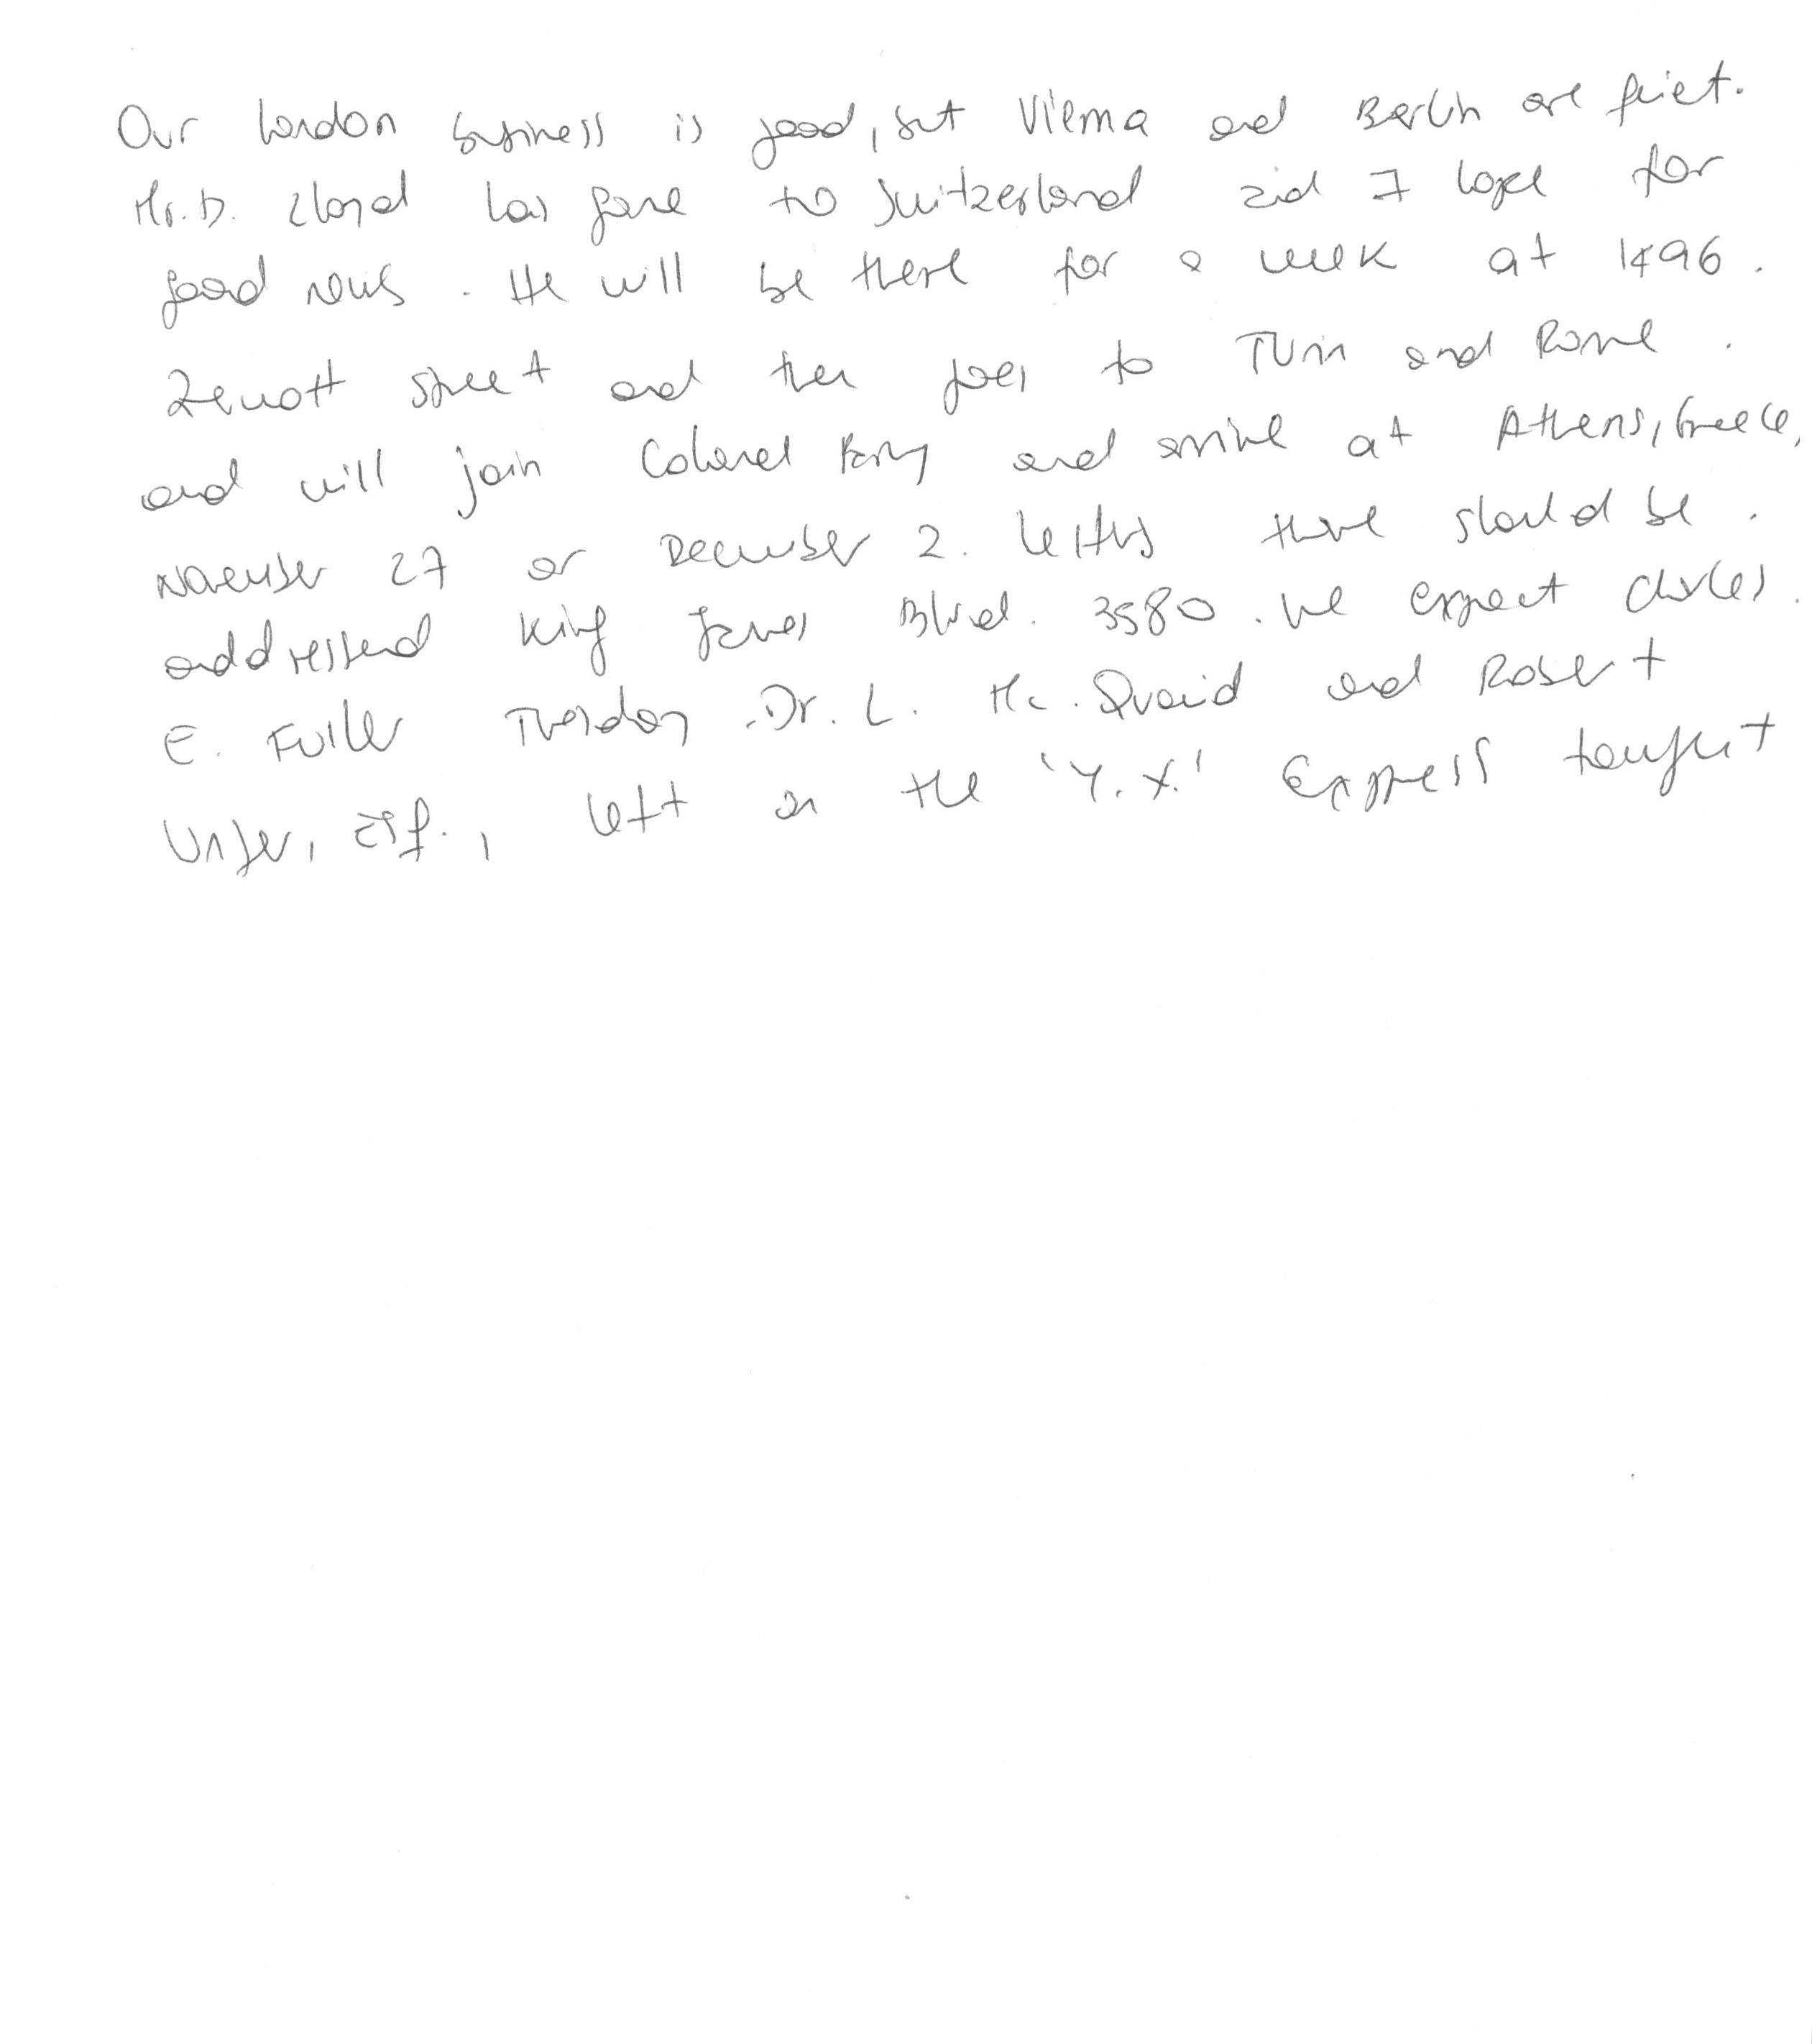 Our London business is good, but Vienna and Berlin are quiet.
Mr. D. Lloyd has gone to Switzerland and I hope for
good news. He will be there for a week at 1496.
Zermott street and then goes to Turin and Rome.
and will join Colonel Parry and arrive at Athens, Greece,
November 27 or December 2. Letters there should be.
addressed King James Blvd. 3580. We expect Charles.
E. Fuller Tuesday. Dr. L. Mc. Quaid and Robert
Unger, Esq., left on the 'Y.X.' Express tonight